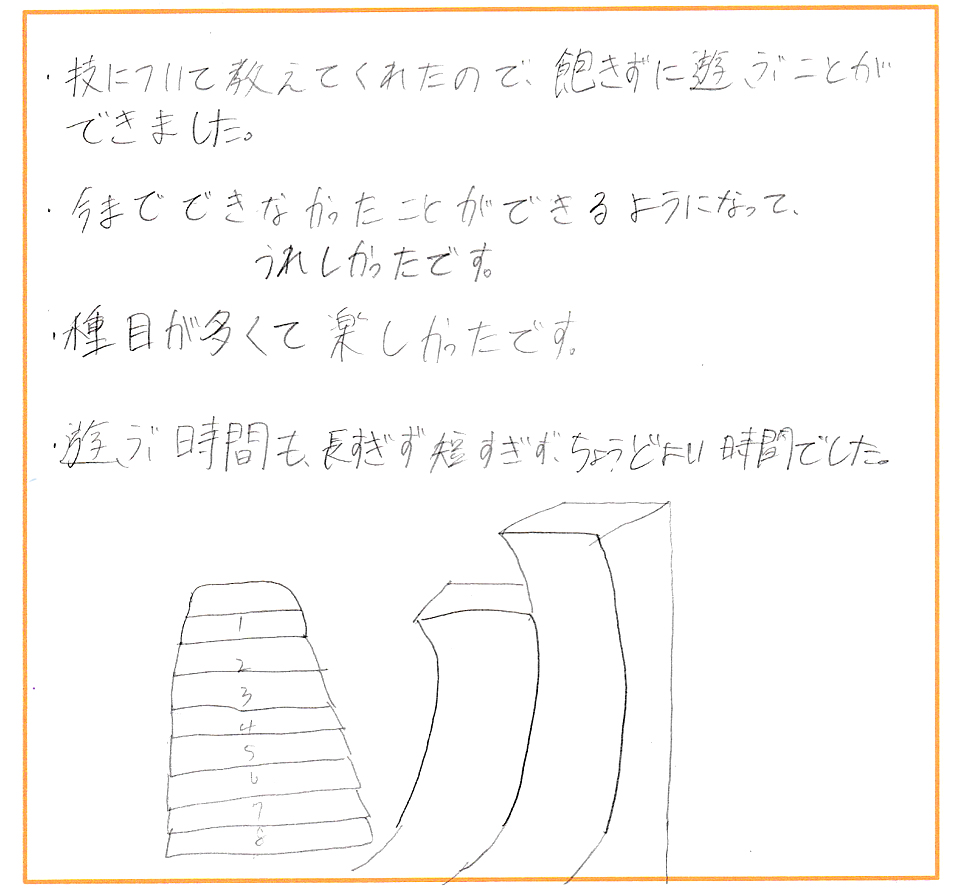 ・技について教えてくれたので、飽きずに遊ぶことが
できました。
・今までできなかったことができるようになって、
うれしかったです。
・種目が多くて楽しかったです。
・遊ぶ時間も、長すぎず短すぎず、ちょうどよい時間でした。
1
2
3
4
5
6
7
8